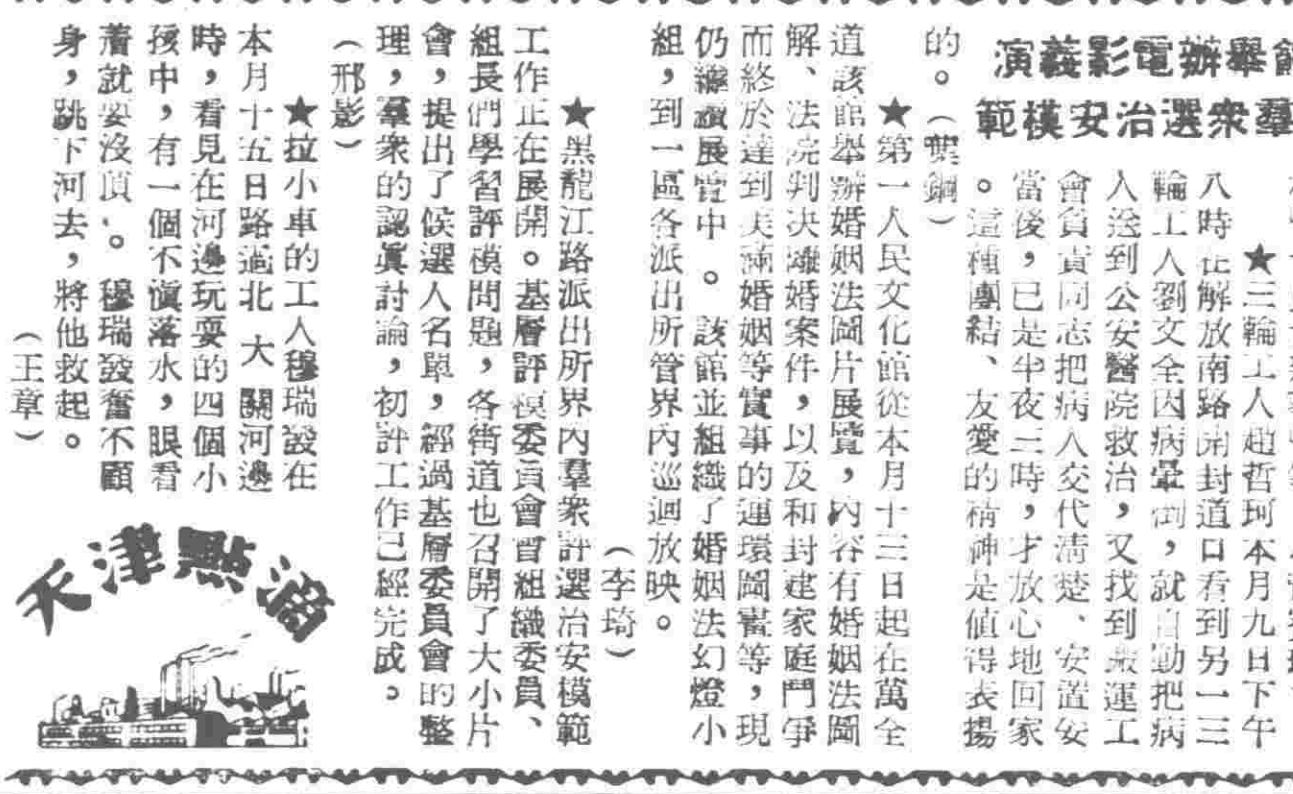 館舉辦電影義演
羣衆選治安模範
★三輪工人趙哲珂本月九日下午
八時在解放南路開封道口看到另一三
輪工人劉文全因病暈倒，就自動把病
人送到公安醫院救治，又找到搬運工
會負責同志把病人交代清楚、安置安
當後，已是半夜三時，才放心地回家
。這種團結、友愛的精神是値得表揚
的。（鋼）
★第一人民文化館從本月十三日起在萬全
道該館舉辦婚姻法圖片展覽，內容有婚姻法圖
解、法院判决離婚案件，以及和封建家庭鬥爭
而終於達到美滿婚姻等實事的連環圖畫等，現
仍繼續展覽中。該館並組織了婚姻法幻燈小
組，到一區各派出所管界內巡迴放映。
（李琦）
★黑龍江路派出所界內羣衆評選治安模範
工作正在展開。基層評模委員會曾組織委員、
組長們學習評模問題，各街道也召開了大小片
會，提出了候選人名單，經過基層委員會的整
理，羣衆的認眞討論，初評工作已經完成。
（邢影）
★拉小車的工人穆瑞發在
本月十五日路過北大關河邊
時，看見在河邊玩耍的四個小
孩中，有一個不愼落水，眼看
着就要沒頂。穆瑞發奮不顧
身，跳下河去，將他救起。
（王章）
天津點滴